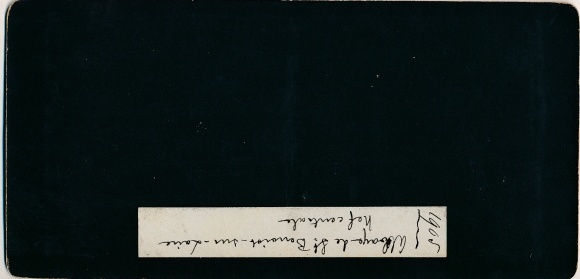 1905
Abbaye de St. Benoist-sur-Loire
Nef centrale